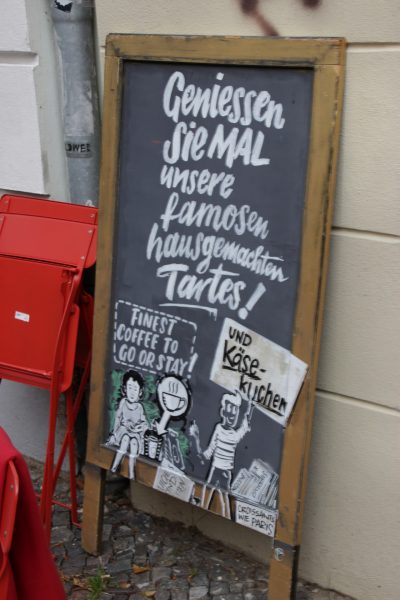 Geniessen
Sie MAL
unsere
famosen
hausgemachten
Tartes!
FINEST
COFFEE TO
GO OR STAY!
UND
Käse-
kuchen
CROISSANTS
WIE PARYS